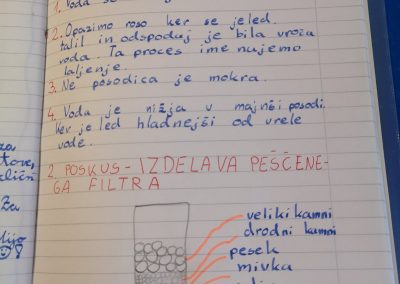 1. Voda se
2. Opazimo roso ker se jeled
talil in odspoduj je bila vroča
voda. Ta proces ime nujemo
taljenje.
3. Ne posodica je mokra.
4. Voda je nižja v majnši posodi.
Ker je led hladnejši od vrele
vode.
2. POSKUS - IZDELAVA PEŠČENE-
GA FILTRA
veliki kamni
drodni kamni
pesek
mivka
za
Za